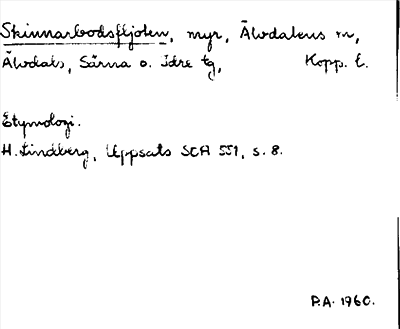 Skinnarbodsfljoten, myr, Älvdalens sn,
Älvdals, Särna o. Idre tg, Kopp. l.
Etymologi.
H. Lindberg, Uppsats SOA 551, s. 8.
P.A. 1960.